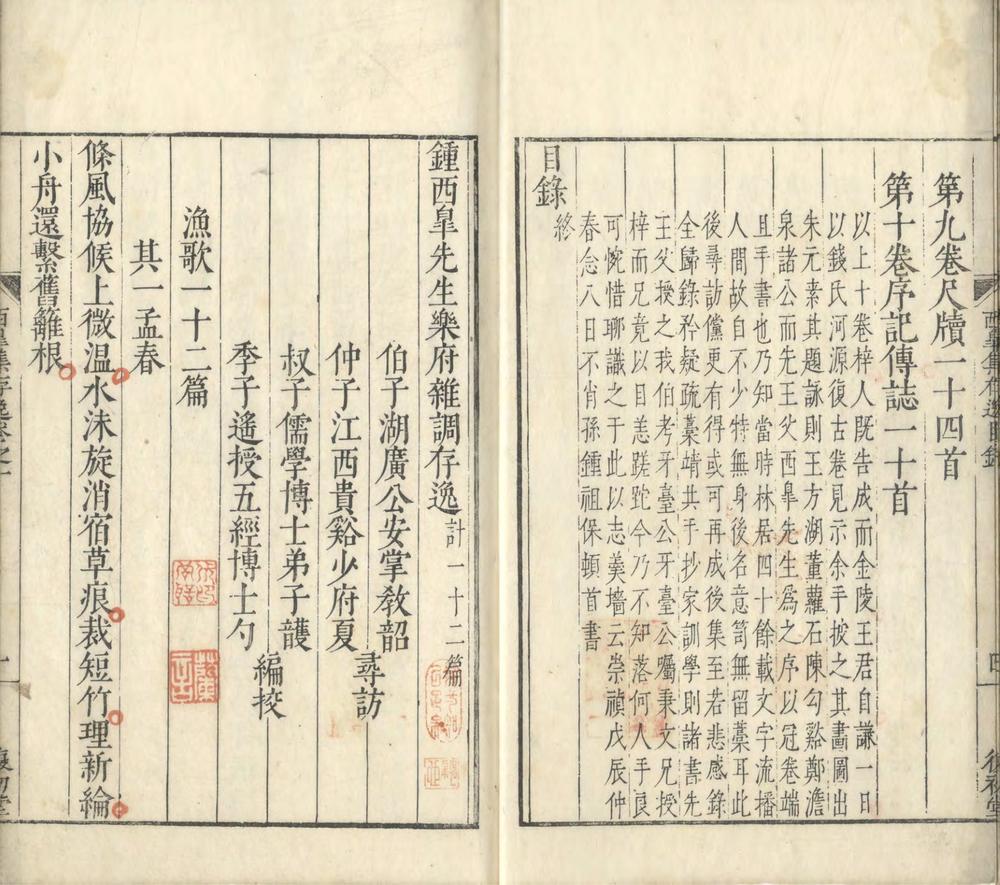 第九卷尺牘一十四首
第十卷序記傳誌一十首
以上十卷梓人既告成而金陵王君自謙一日
以錢氏河源復古卷見示余手披之其畵圖出
朱元素其題詠則王方湖董蘿石陳勾谿鄭澹
泉諸公而先王父西臯先生爲之序以冠卷端
且手書也乃知當時林居四十餘載文字流播
人間故自不少特無身後名意笥無留藁耳此
後尋訪儻更有得或可再成後集至若悲感錄
全歸錄矜疑疏藁靖共手抄家訓學則諸書先
王父授之我伯考牙臺公牙臺公囑秉文兄授
梓而兄竟以目恙蹉跎今乃不知落何人手良
可惋惜瑯識之于此以志羮墻云崇禎戊辰仲
春念八日不肖孫鍾祖保頓首書
目錄
終
鍾西臯先生樂府雜調存逸 計一十二篇
伯子湖廣公安掌敎韶
仲子江西貴谿少府夏 尋訪
叔子儒學博士弟子頀
季子遙授五經博士勺 編挍
漁歌一十二篇
其一孟春
條風協候上微溫水沬旋消宿草痕裁短竹理新綸
小舟還繫舊籬根